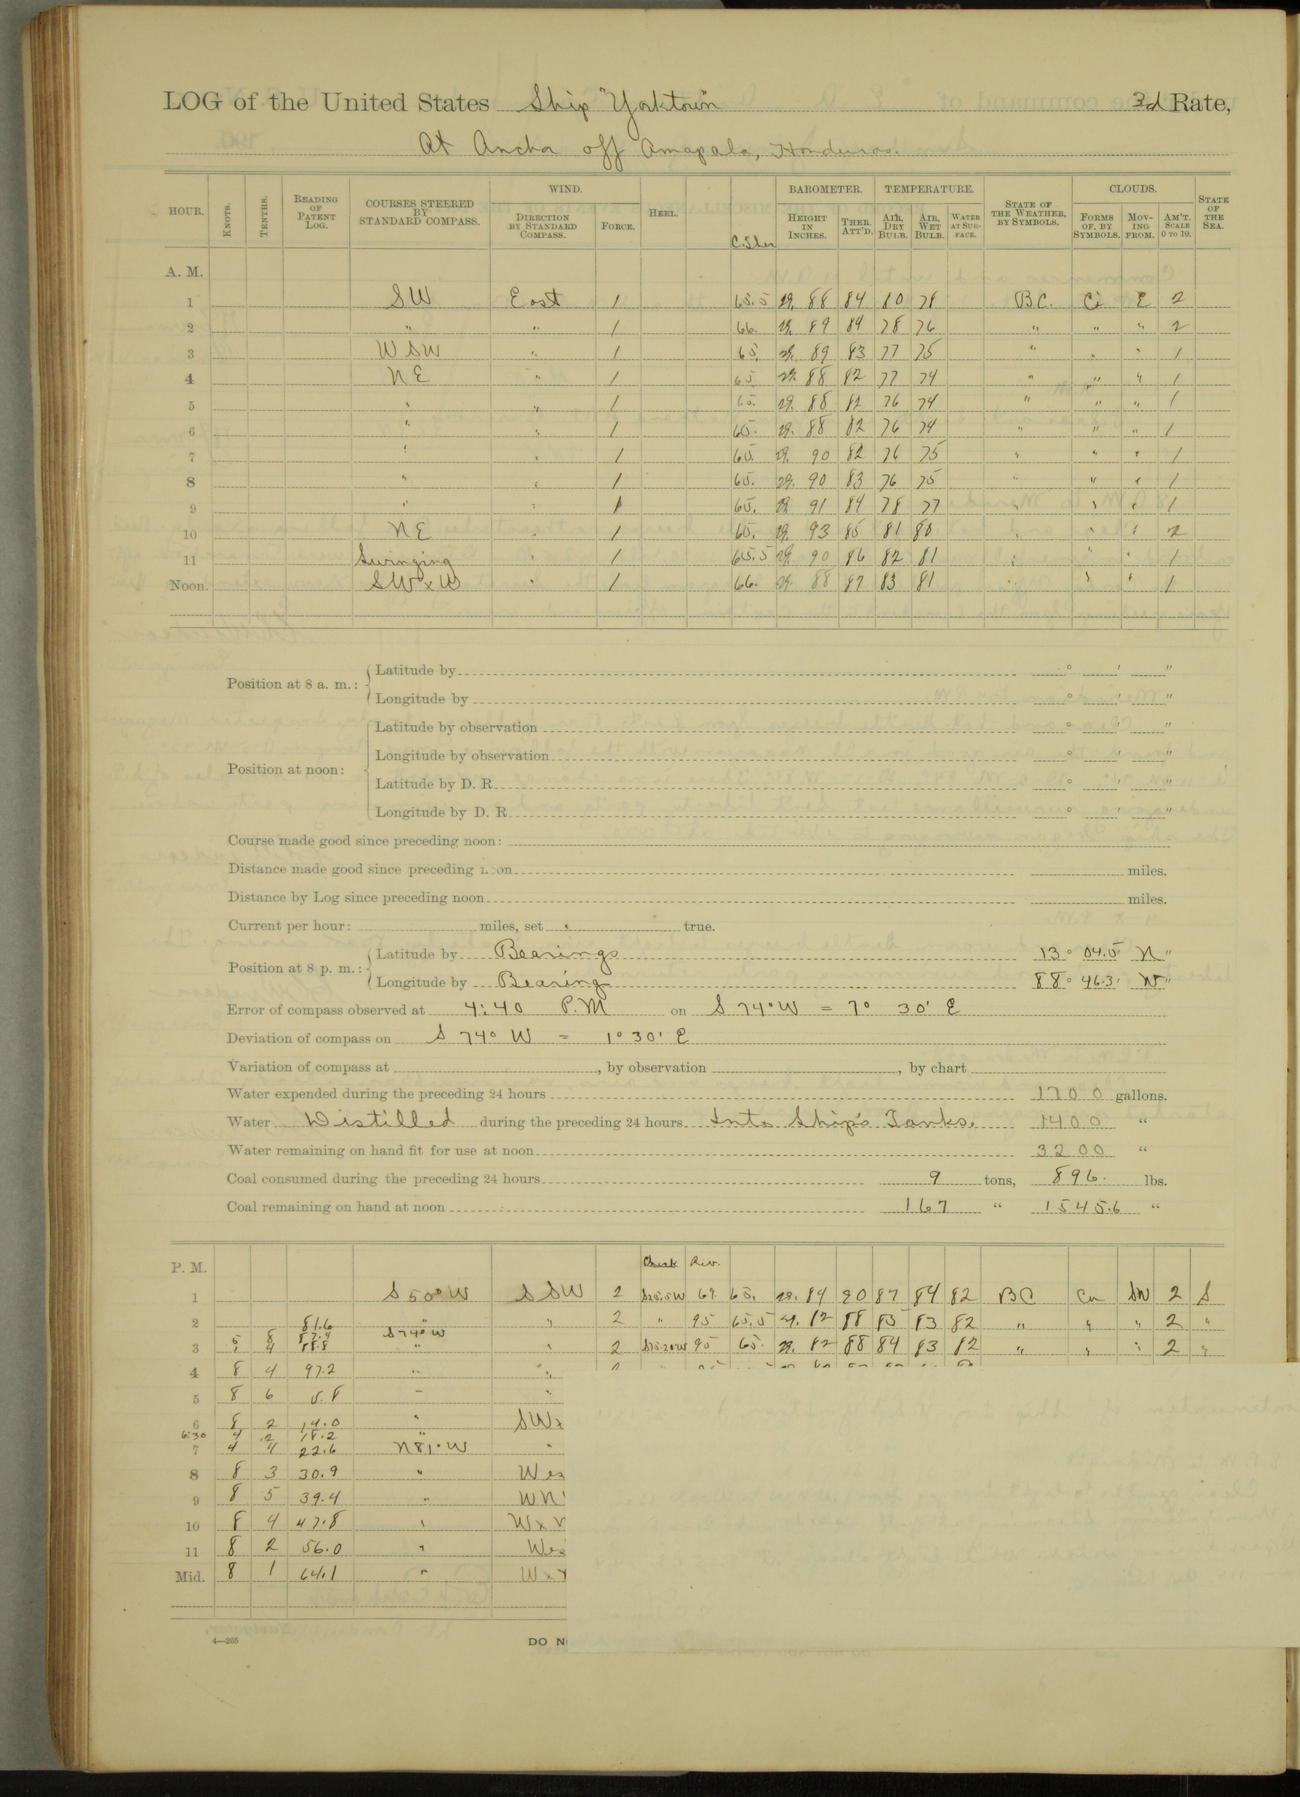 LOG of the United States Ship "Yorktown" 3d Rate,
At Anchor off Amapala, Honduras.
HOUR. KNOTS. TENTHS. READING OF PATENT LOG. COURSES STEERED BY STANDARD COMPASS. WIND. DIRECTION BY STANDARD COMPASS. FORCE. HEEL. BAROMETER. HEIGHT IN INCHES. THER. ATT'D. TEMPERATURE. AIR, DRY BULB. AIR, WET BULB. WATER AT SURFACE. STATE OF THE WEATHER, BY SYMBOLS. CLOUDS. FORMS OF, BY SYMBOLS. MOVING FROM. AM'T. SCALE 0 TO 10. STATE OF THE SEA.
A. M.
1 SW East 1 65.5 29. 88 84 80 78 BC. Ci E 2
2 " " 1 66. 29. 89 84 78 76 " " " 2
3 WSW " 1 65. 29. 89 83 77 75 " " " 1
4 NE " 1 65. 29. 88 82 77 74 " " " 1
5 " " 1 65. 29. 88 82 76 74 " " " 1
6 " " 1 65. 29. 88 82 76 74 " " " 1
7 " " 1 65 29. 90 82 76 75 " " " 1
8 " " 1 65. 29. 90 83 76 75 " " " 1
9 " " 1 65. 29. 91 84 78 77 " " " 1
10 NE " 1 65. 29. 93 85 81 80 " " " 2
11 Swinging " 1 65.5 29. 90 86 82 81 " " " 1
Noon. SWxW " 1 66. 29. 88 87 83 81 " " " 1
Position at 8 a. m.: Latitude by ° ' "
Longitude by ° ' "
Position at noon: Latitude by observation ° ' "
Longitude by observation ° ' "
Latitude by D. R. ° ' "
Longitude by D. R. ° ' "
Course made good since preceding noon:
Distance made good since preceding noon miles.
Distance by Log since preceding noon miles.
Current per hour: miles, set true.
Position at 8 p. m.: Latitude by Bearings 13° 04.5' N"
Longitude by Bearing 88° 46.3' W"
Error of compass observed at 4:40 P.M on S 74° W = 7° 30' E
Deviation of compass on S 74° W = 1° 30' E
Variation of compass at , by observation , by chart
Water expended during the preceding 24 hours 1700 gallons.
Water Distilled during the preceding 24 hours Into Ship's Tanks. 1400 "
Water remaining on hand fit for use at noon 3200 "
Coal consumed during the preceding 24 hours 9 tons, 896. lbs.
Coal remaining on hand at noon 167 " 1545.6 "
P. M. Rev.
1 S 50° W SSW 2 69. 65. 29. 84 90 87 84 82 BC Cu SW 2 S
2 81.6 " 2 " 95 65.5 29. 82 88 85 83 82 " " " 2 "
3 S 74° W " 2 95 65. 29. 82 88 84 83 82 " " " 2 "
4 8 4 97.2 " "
5 8 6 5.8 " "
6 8 2 14.0 " SWx
6:30 4 2 18.2 "
7 4 4 22.6 N81°W "
8 8 3 30.9 " Wes
9 8 5 39.4 " WN
10 8 4 47.8 "
11 8 2 56.0 " Wes
Mid. 8 1 64.1 "
4—265 DO N